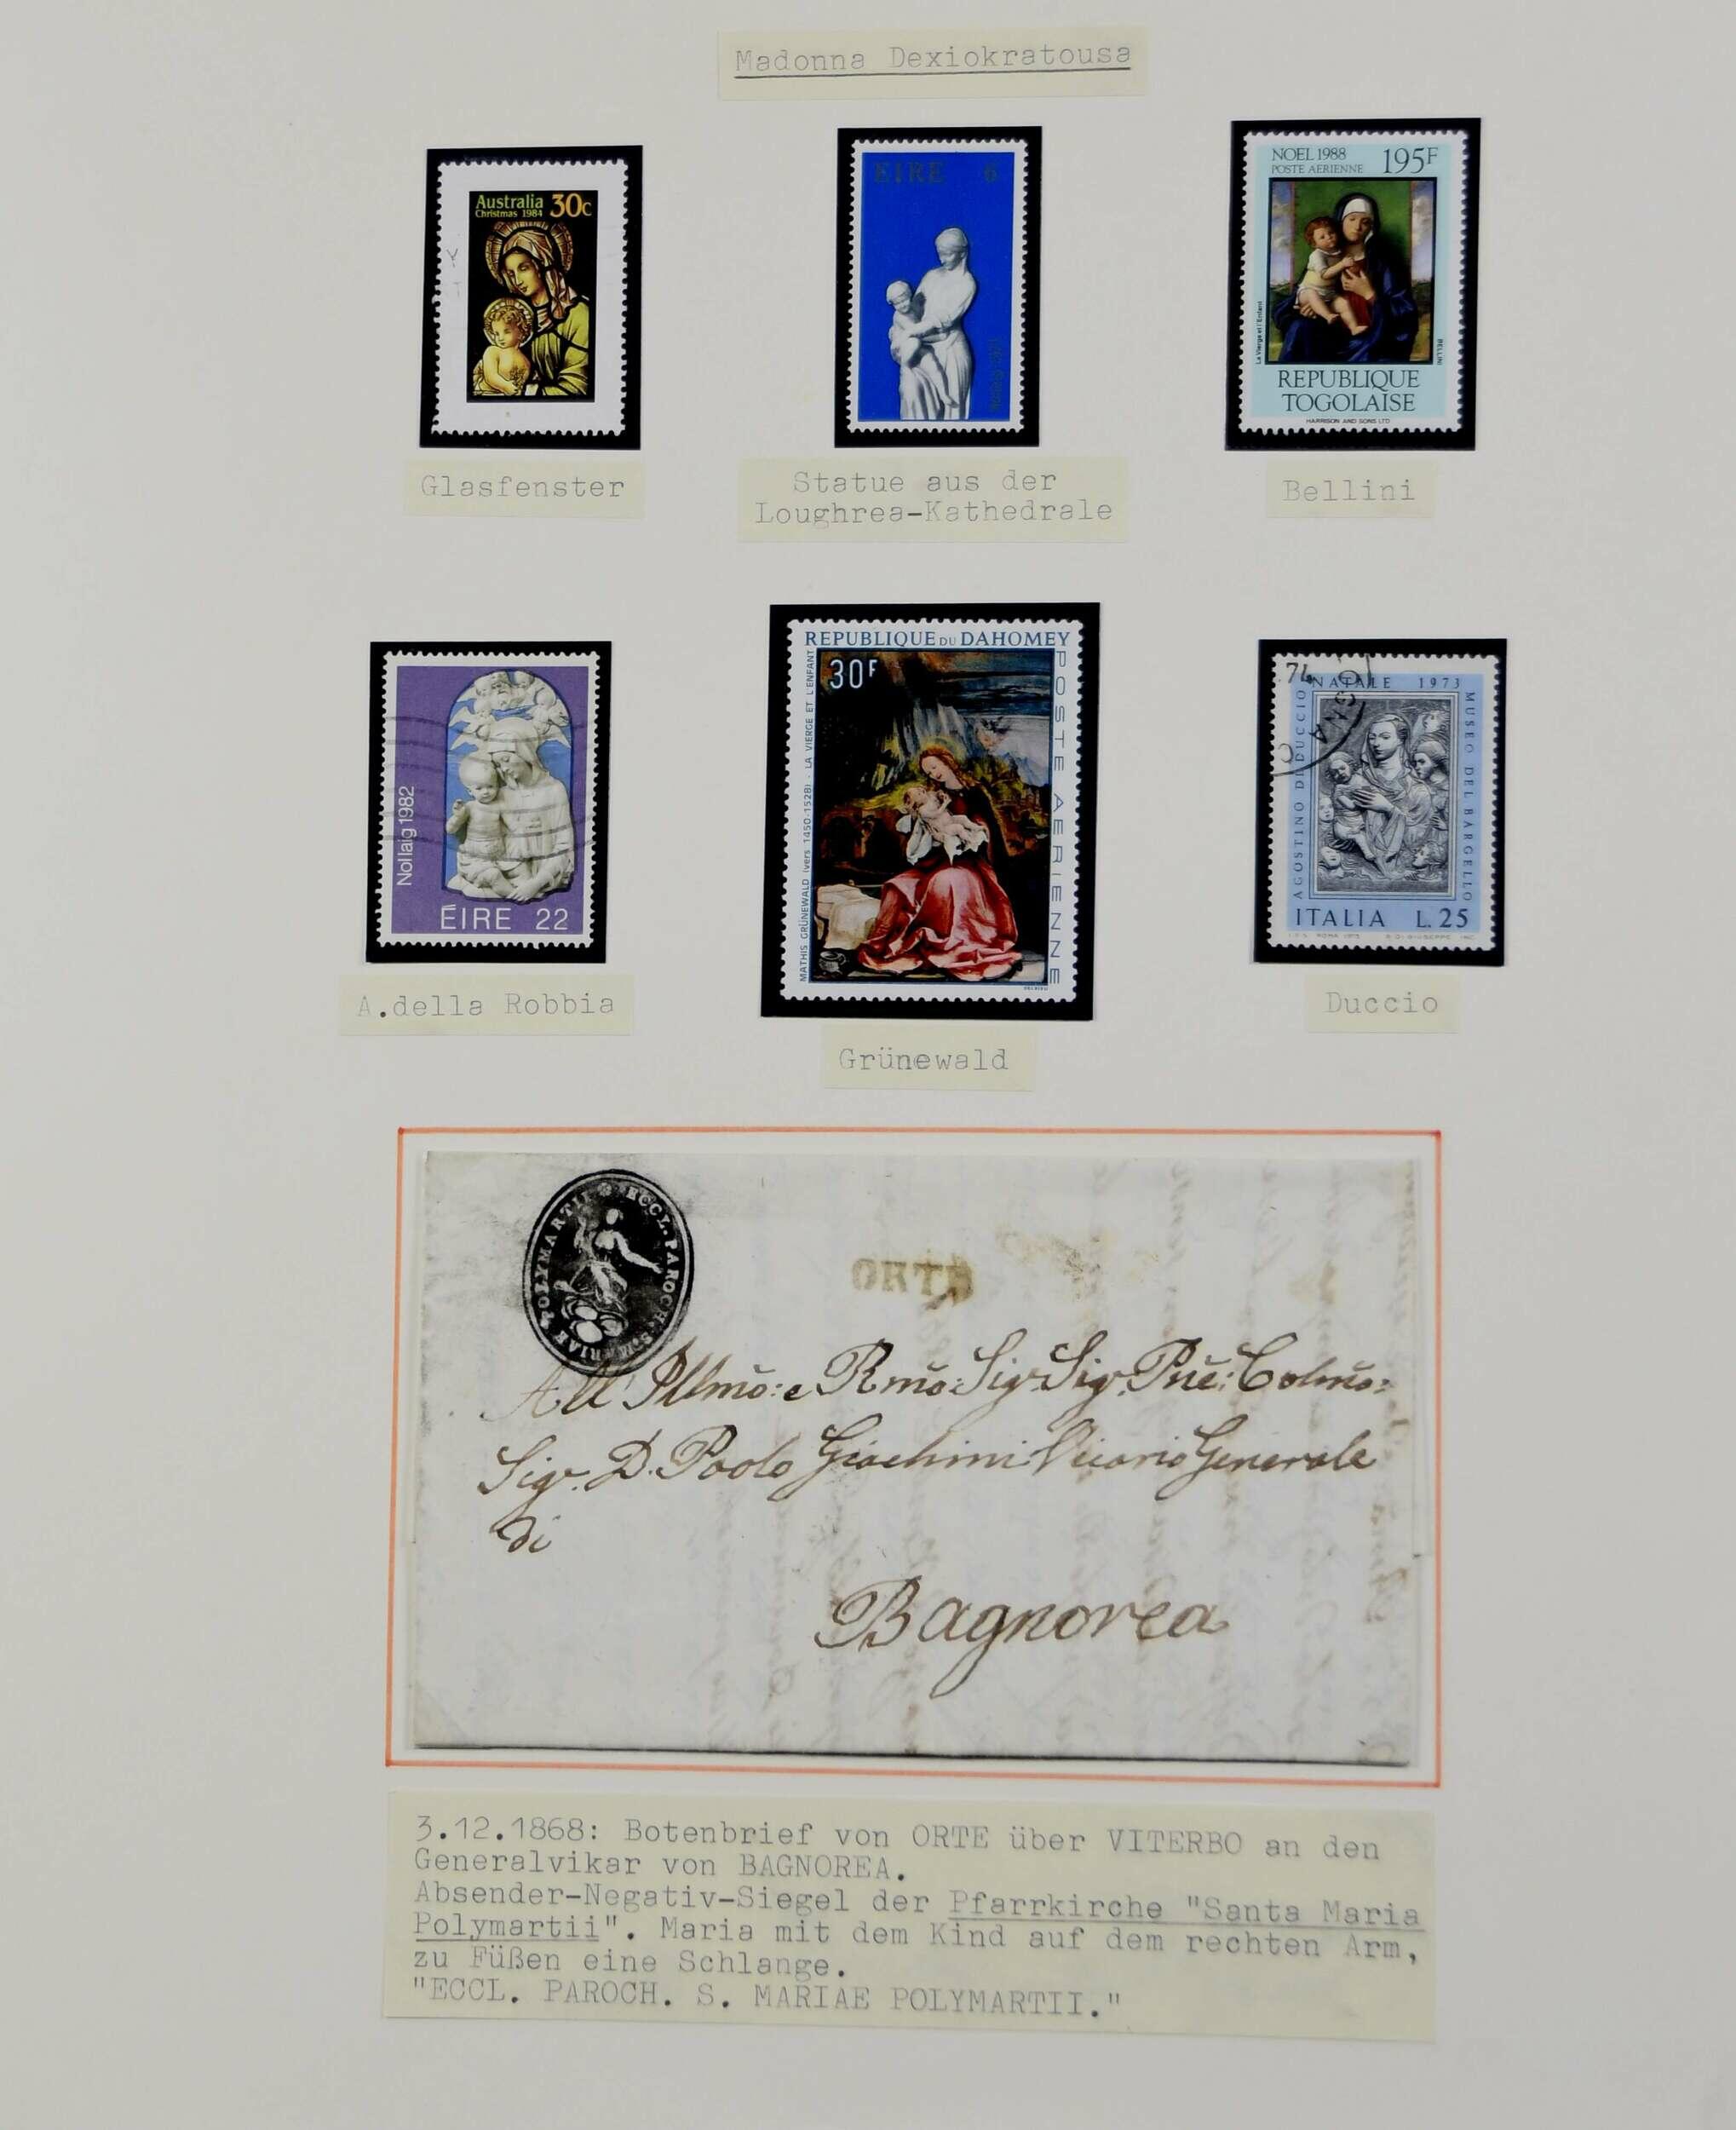 Madonna Dexiokratousa
Australia 30c
Christmas 1984
EIRE 6
NOEL 1988
POSTE AERIENNE
195F
La Vierge et l'Enfant
BELLINI
REPUBLIQUE
TOGOLAISE
HARRISON AND SONS LTD
Glasfenster
Statue aus der
Loughrea-Kathedrale
Bellini
Nollaig 1982
ÉIRE 22
REPUBLIQUE DU DAHOMEY
30F
MATHIS GRÜNEWALD (vers 1450-1528) - LA VIERGE ET L'ENFANT
POSTE AERIENNE
74
NATALE 1973
AGOSTINO DI DUCCIO
MUSEO DEL BARGELLO
ITALIA L.25
A.della Robbia
Grünewald
Duccio
ECCL. PAROCH. S. MARIAE POLYMARTII
ORTE
All' Illmo: e Rmo: Sigr. Sigr. Pne: Colmo:
Sigr. D. Paolo Giachini Vicario Generale
di
Bagnorea
3.12.1868: Botenbrief von ORTE über VITERBO an den
Generalvikar von BAGNOREA.
Absender-Negativ-Siegel der Pfarrkirche "Santa Maria
Polymartii". Maria mit dem Kind auf dem rechten Arm,
zu Füßen eine Schlange.
"ECCL. PAROCH. S. MARIAE POLYMARTII."